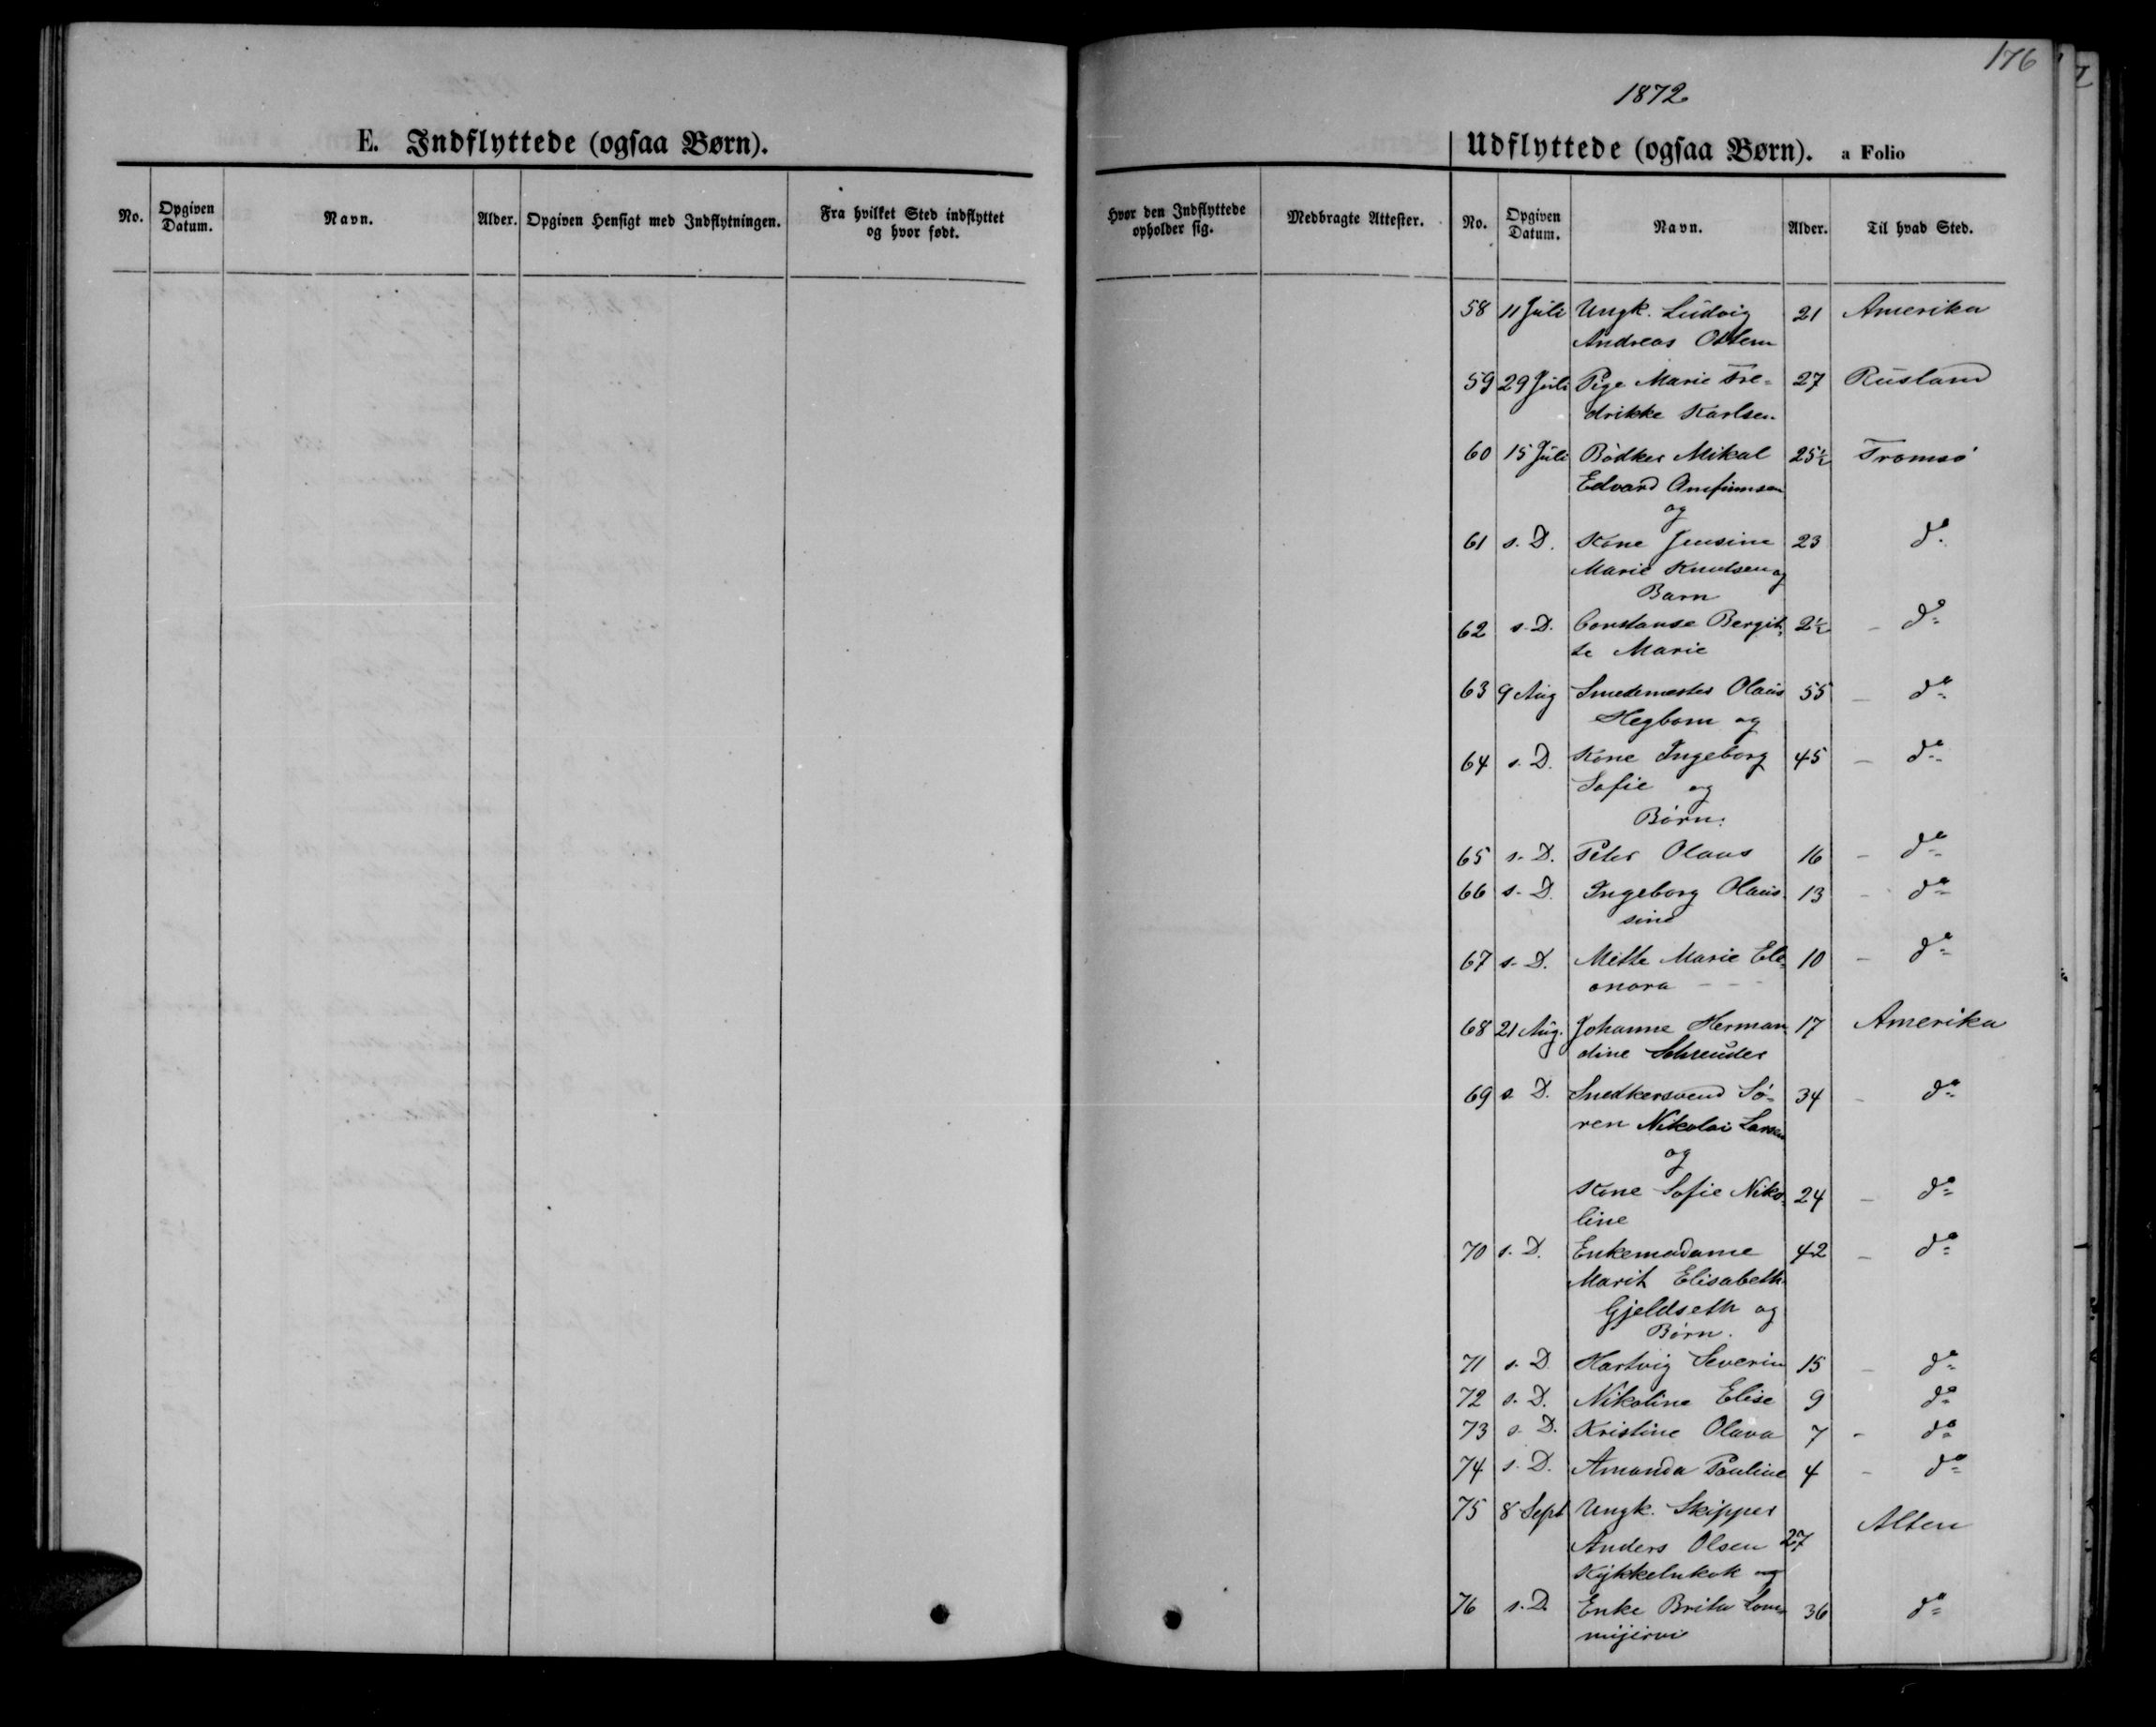 176
1872
E. Indflyttede (ogsaa Børn).
No. Opgiven Datum. Navn. Alder. Opgiven Hensigt med Indflytningen. Fra hvilket Sted indflyttet og hvor født.
Hvor den Indflyttede opholder sig. Medbragte Attester.
Udflyttede (ogsaa Børn). a Folio
No. Opgiven Datum. Navn. Alder. Til hvad Sted.
58 11 Juli Ungk. Ludvig 21 Amerika
Andreas
59 29 Juli Pige Marie Fre- 27 Rusland
drikke Karlsen
60 15 Juli Bødker Mikal 25½ Tromsø
Edvard
og
61 s. D. Kone Jensine 23 do
Marie Knudsen og
Barn
62 s. D. Constanse Bergit- 2½ - do
te Marie
63 9 Aug Smedemester Olaus 55 - do
Hegbom og
64 s. D. Kone Ingeborg 45 - do
Sofie og
Børn:
65 s. D. Peter Olaus 16 - do
66 s. D. Ingeborg Olaus- 13 - do
sine
67 s. D. Mette Marie Ele- 10 - do
onora
68 21 Aug. Johanne Herman 17 Amerika
dine Schreuder
69 s D. Snedkersvend Sø- 34 - do
ren Nikolai Larsen
og
Kone Sofie Niko- 24 - do
line
70 s. D. Enkemadame 42 - do
Marit Elisabeth
Gjeldseth og
Børn.
71 s. D. Hartvig Severin 15 - do
72 s. D. Nikoline Elise 9 do
73 s. D. Kristine Olava 7 - do
74 s. D. Amanda Pauline 4 - do
75 8 Sept Ungk. Skipper Alten
Anders Olsen 27
og
76 s. D. Enke Brita 36 do